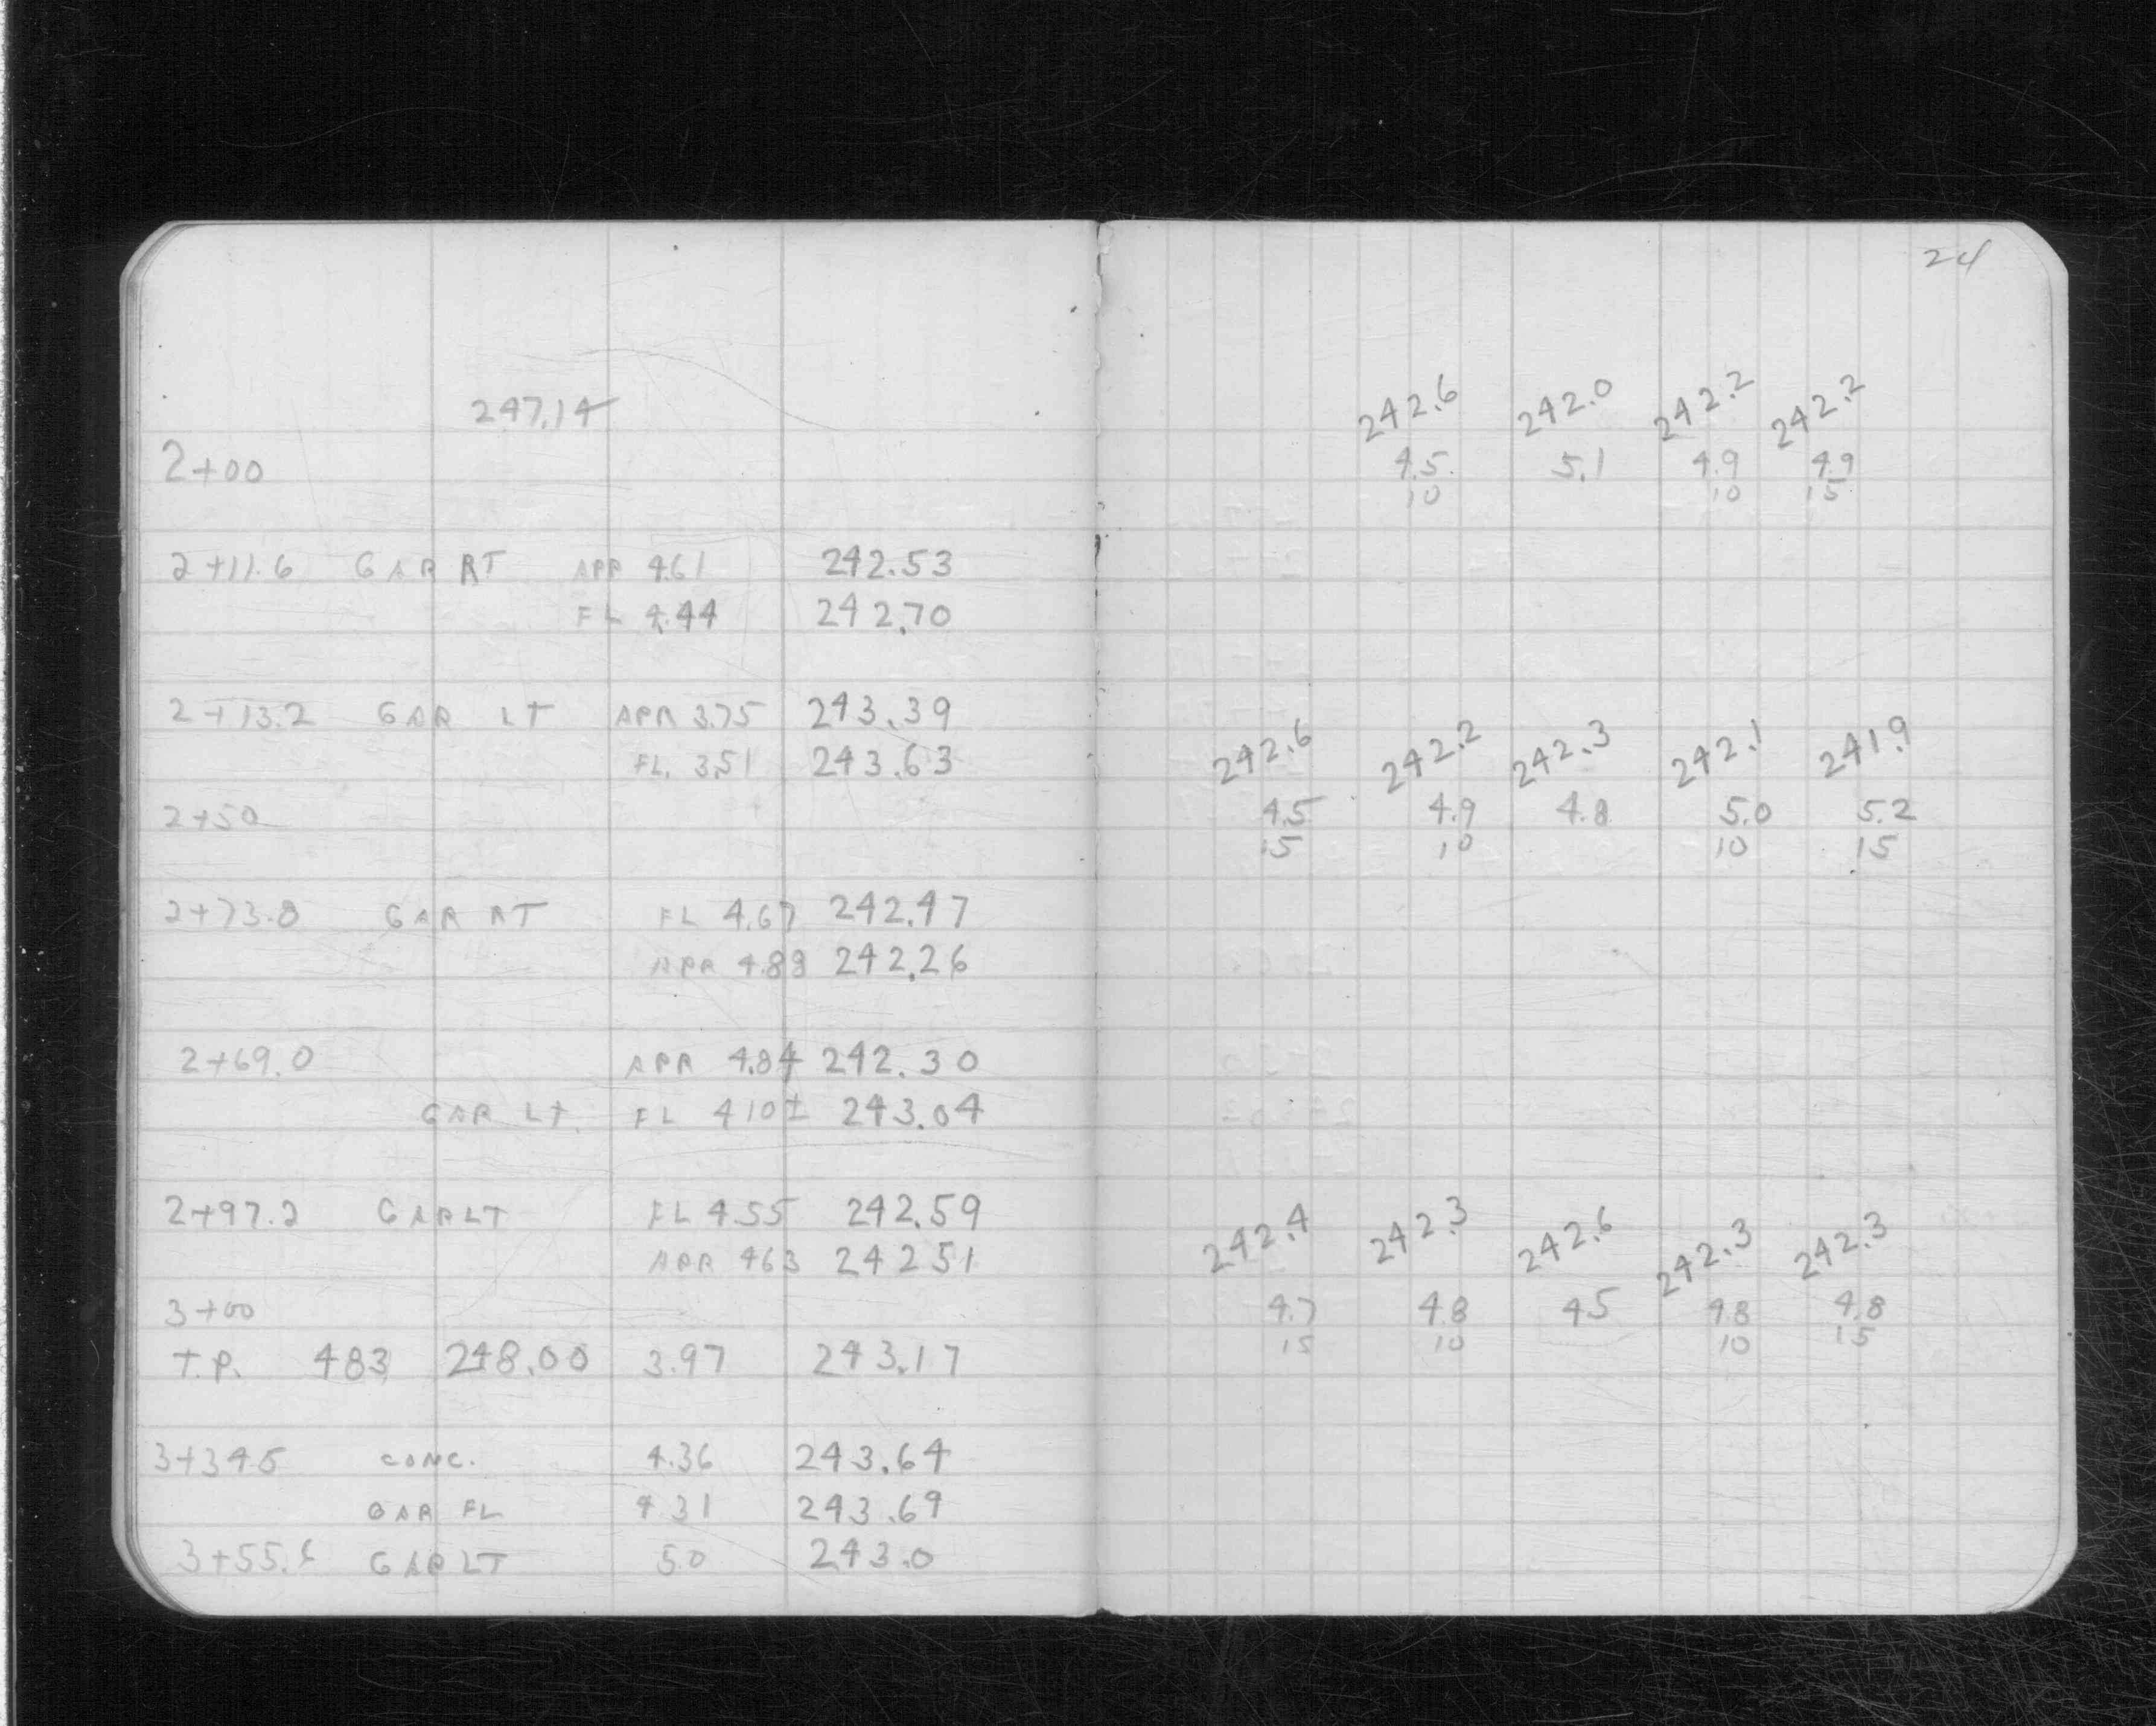 247.14
2+00
2+11.6 GAR RT APR 4.61 242.53
FL 4.44 242.70
2+13.2 GAR LT APR 3.75 243.39
FL. 3.51 243.63
2+50
2+73.8 GAR RT FL 4.67 242.47
APR 4.88 242.26
2+69.0 APR 4.84 242.30
GAR LT. FL 4.10± 243.04
2+97.2 GAR LT FL 4.55 242.59
APR 463 242 51
3+00
T.P. 483 248.00 3.97 243.17
3+34.5 CONC. 4.36 243.64
GAR FL 4 31 243.69
3+55.6 GAR LT 5.0 243.0
24
242.6 242.0 242.2 242.2
4.5 5.1 4.9 4.9
10 10 15
242.6 242.2 242.3 242.1 241.9
4.5 4.9 4.8 5.0 5.2
15 10 10 15
242.4 242.3 242.6 242.3 242.3
4.7 4.8 4.5 4.8 4.8
15 10 10 15